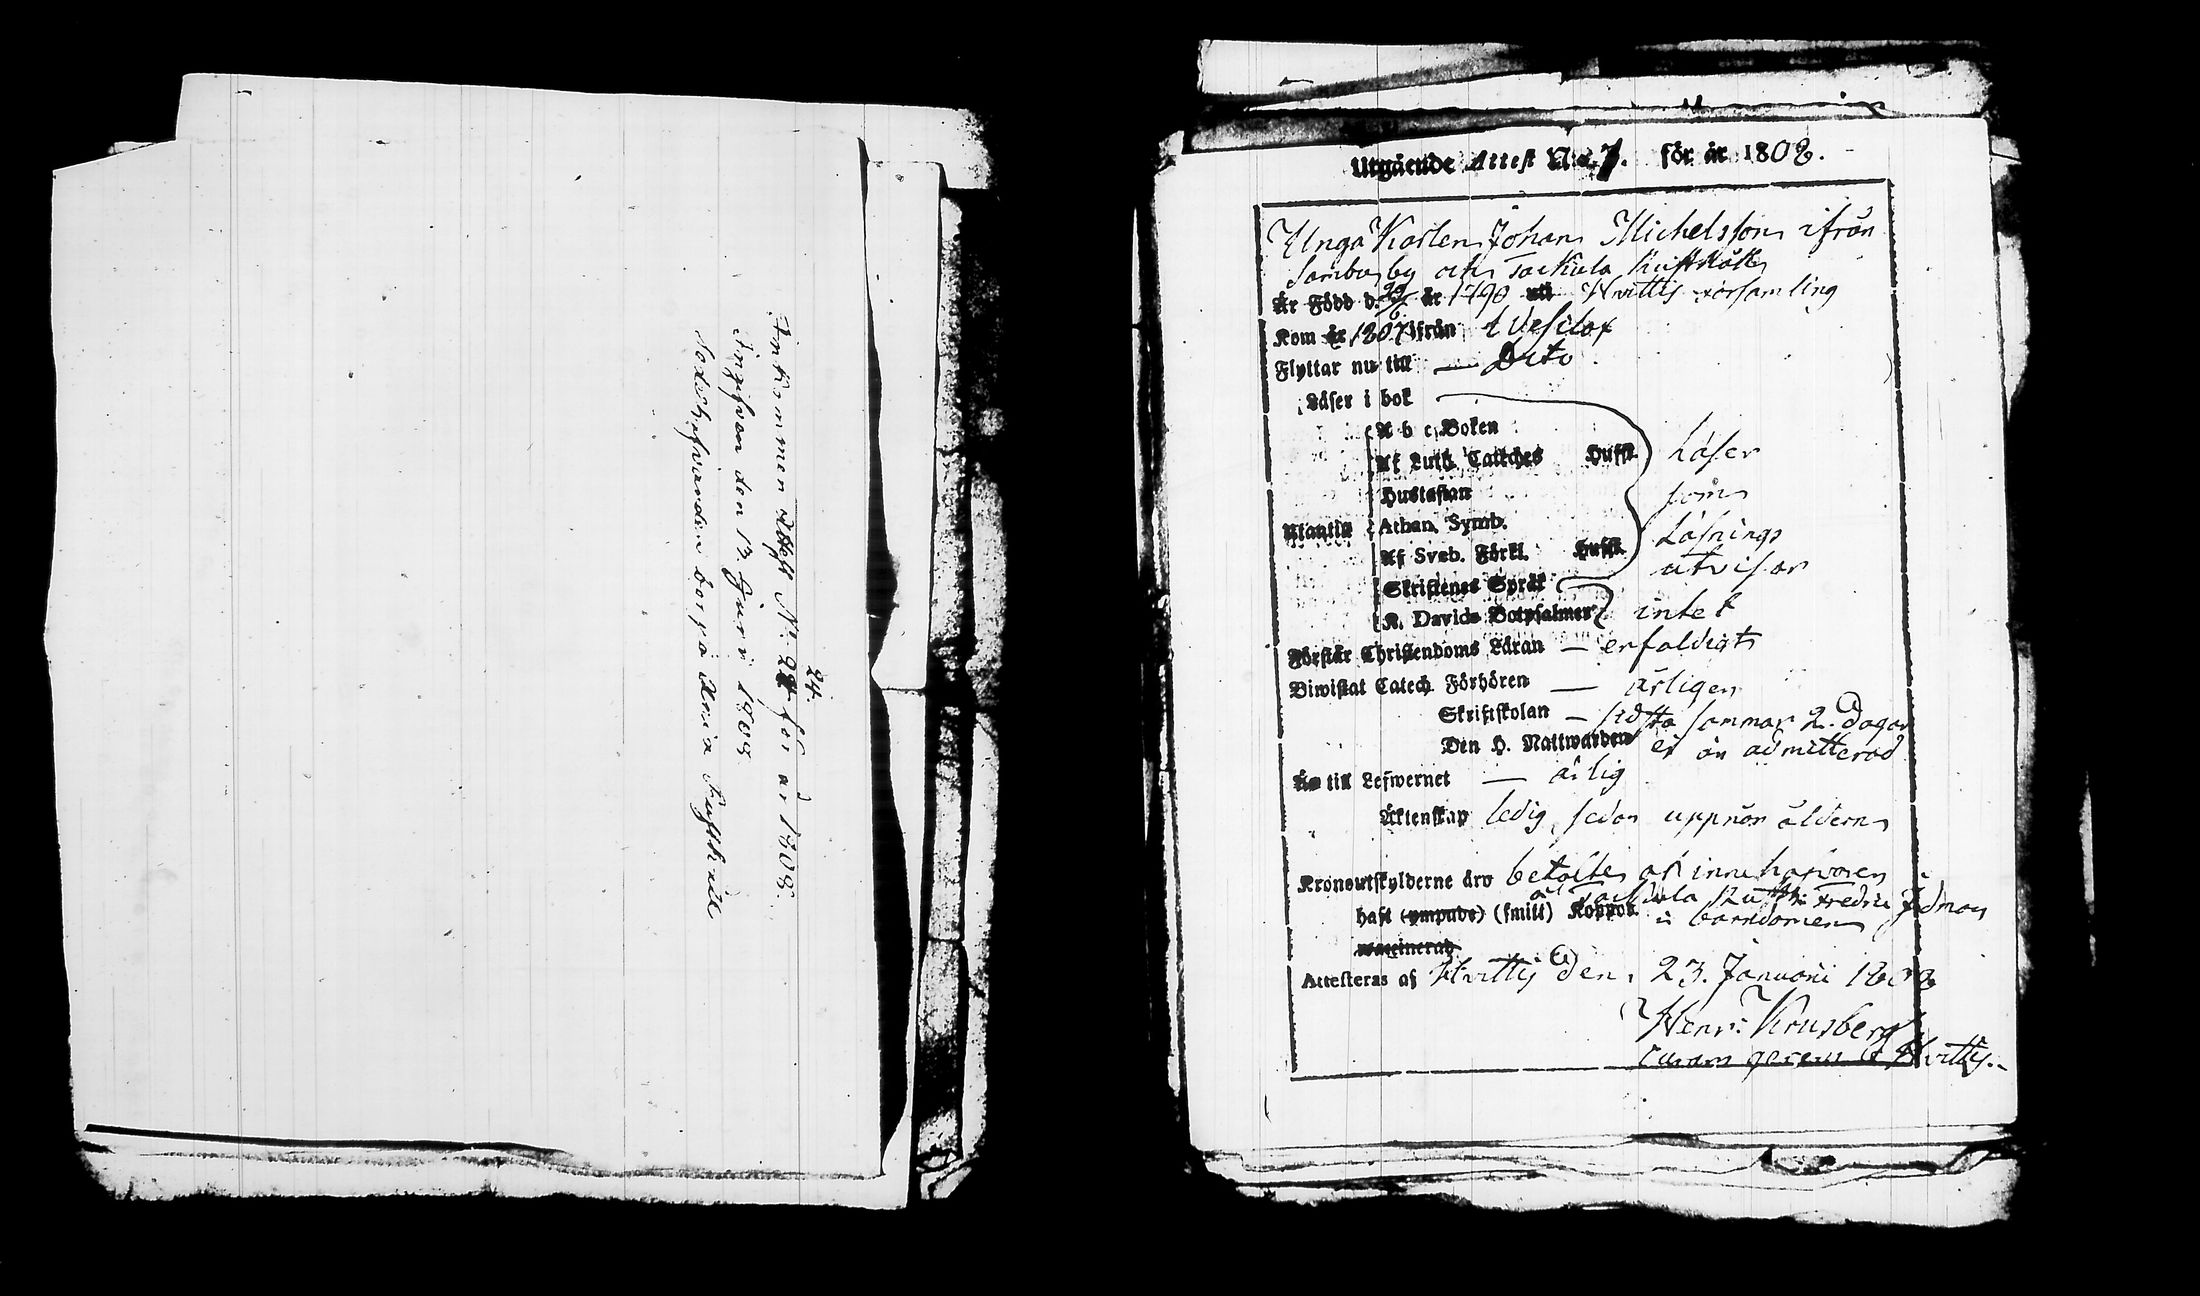 24.
Inkommen Attest N:o 24 för år 1808.
Ingifven den 13. Junii 1808
Utgående Attest N:o 7. för år 1808.
Unga Karlen Johan Michelsson ifrån
Sambu by och Tackula
Är Född d. 22/6 år 1790 uti Hvittis församling
Kom år 1807 ifrån Wesilax
Flyttar nu till — Dito
Läser i bok
A b c Boken
Af Luth. Catéches Hufst. Läser
Hustaflan som
Utantill Athan. Symb. Läsnings
Af Sveb. Förkl. Hufst. utvisar
Skriftenes Språk
K. Davids Botpsalmer intet
Förstår Christendoms Läran — enfaldigt
Biwistat Catech. Förhören — årligen
Skriftskolan — sidsta sommar 2. dagar
Den H. Nattwarden ej än admitterad
Är till Lefwernet — ärlig
Äktenskap ledig, sedan uppnår åldern
Kronoutskylderne äro betalte af innehafvaren
af Tackula
haft (ympade) (smitt) Koppor i barndomen
waccinerad
Attesteras af Hvittis den 23. Januarii 1808
Henr: Krusberg
curam gerens i Hvittis.